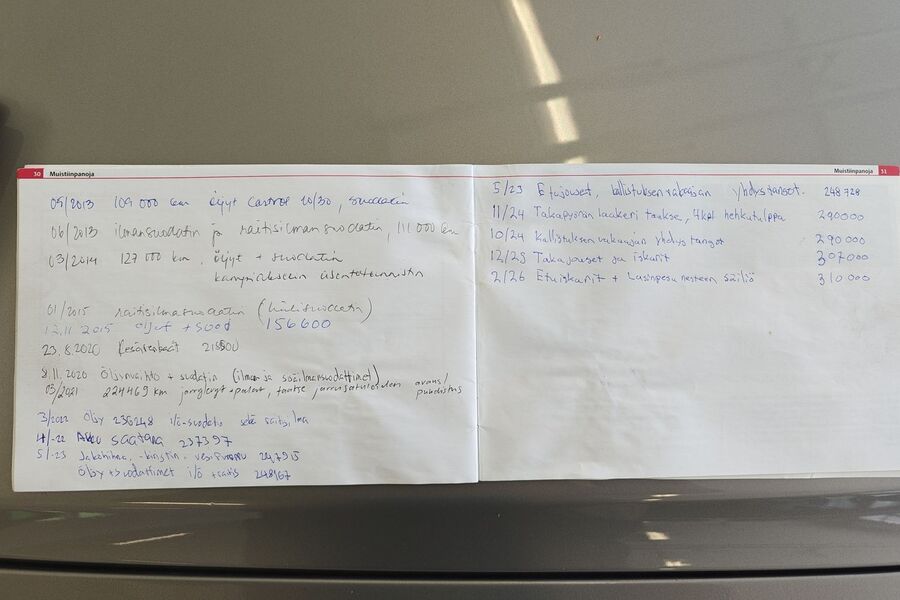 30 Muistiinpanoja
05/2013 109 000 km öljyt Castrol 10/30, suodatin
06/2013 ilmansuodatin ja raitisilmansuodatin, 111 000 km
03/2014 127 000 km, öljyt + suodatin
kampiakselin asentotunnistin
01/2015 raitisilmasuodatin (hiilisuodatin)
12.11 2015 öljyt + suod 156600
23.8.2020 Kesärenkaat
8.11.2020 Öljynvaihto + suodatin (ilman ja
03/2021 224469 km jarrulevyt + palat, taakse avaus/
puhdistus
3/2022 Öljy 236248 i/ö-suodatin sekä raitisilma
4/-22 Akku saatana 237397
5/-23 Jakohihna, -kiristin - vesipumppu
Öljy + suodattimet i/ö + raitis 248167
Muistiinpanoja 31
5/23 Etujouset, kallistuksen vakaajan yhdystangot. 248728
11/24 Takapyörän laakeri taakse, 4kpl hehkutulppa 290000
10/24 Kallistuksen vakaajan yhdystangot 290000
Takajouset ja iskarit 307000
2/26 Etuiskarit + Lasinpesunesteen säiliö 310000